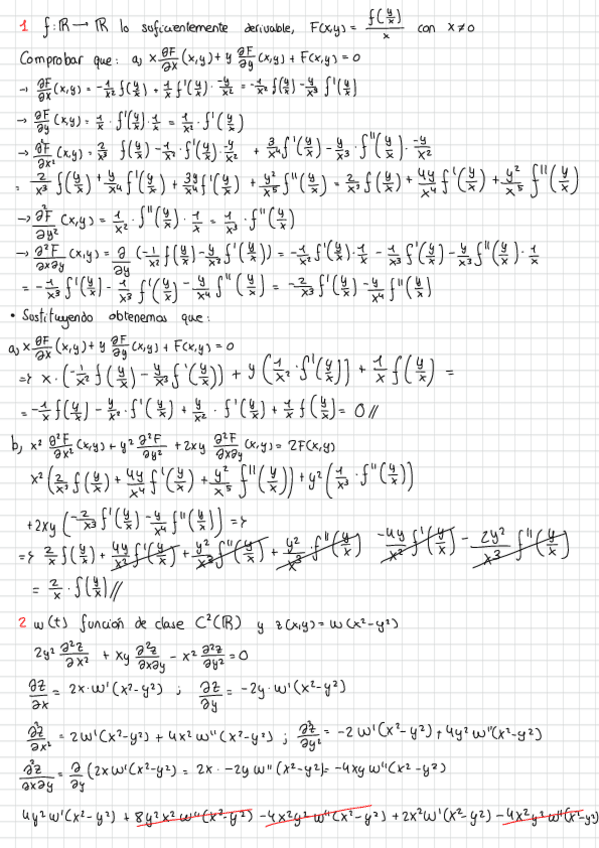 1 f: ℝ → ℝ lo suficientemente derivable, F(x,y) = f(y/x)/x con x ≠ 0
Comprobar que: a) x ∂F/∂x (x,y) + y ∂F/∂y (x,y) + F(x,y) = 0
→ ∂F/∂x (x,y) = -1/x² f(y/x) + 1/x f'(y/x) · -y/x² = -1/x² f(y/x) - y/x³ f'(y/x)
→ ∂F/∂y (x,y) = 1/x · f'(y/x) · 1/x = 1/x² · f'(y/x)
→ ∂²F/∂x² (x,y) = 2/x³ f(y/x) - 1/x² · f'(y/x) · -y/x² + 3y/x⁴ f'(y/x) - y/x³ · f''(y/x) · -y/x²
= 2/x³ f(y/x) + y/x⁴ f'(y/x) + 3y/x⁴ f'(y/x) + y²/x⁵ f''(y/x) = 2/x³ f(y/x) + 4y/x⁴ f'(y/x) + y²/x⁵ f''(y/x)
→ ∂²F/∂y² (x,y) = 1/x² · f''(y/x) · 1/x = 1/x³ · f''(y/x)
→ ∂²F/∂x∂y (x,y) = ∂/∂y (-1/x² f(y/x) - y/x³ f'(y/x)) = -1/x² f'(y/x) · 1/x - 1/x³ f'(y/x) - y/x³ f''(y/x) · 1/x
= -1/x³ f'(y/x) - 1/x³ f'(y/x) - y/x⁴ f''(y/x) = -2/x³ f'(y/x) - y/x⁴ f''(y/x)
• Sustituyendo obtenemos que:
a) x ∂F/∂x (x,y) + y ∂F/∂y (x,y) + F(x,y) = 0
=> x · (-1/x² f(y/x) - y/x³ f'(y/x)) + y (1/x² · f'(y/x)) + 1/x f(y/x) =
= -1/x f(y/x) - y/x² · f'(y/x) + y/x² · f'(y/x) + 1/x f(y/x) = 0 //
b) x² ∂²F/∂x² (x,y) + y² ∂²F/∂y² + 2xy ∂²F/∂x∂y (x,y) = 2F(x,y)
x² (2/x³ f(y/x) + 4y/x⁴ f'(y/x) + y²/x⁵ f''(y/x)) + y² (1/x³ · f''(y/x))
+ 2xy (-2/x³ f'(y/x) - y/x⁴ f''(y/x)) =>
=> 2/x f(y/x) + 4y/x² f'(y/x) + y²/x³ f''(y/x) + y²/x³ · f''(y/x) - 4y/x² f'(y/x) - 2y²/x³ f''(y/x)
= 2/x · f(y/x) //
2 w(t) función de clase C²(ℝ) y z(x,y) = w(x²-y²)
2y² ∂²z/∂x² + xy ∂²z/∂x∂y - x² ∂²z/∂y² = 0
∂z/∂x = 2x · w'(x²-y²) ; ∂z/∂y = -2y · w'(x²-y²)
∂²z/∂x² = 2w'(x²-y²) + 4x² w''(x²-y²) ; ∂²z/∂y² = -2 w'(x²-y²) + 4y² w''(x²-y²)
∂²z/∂x∂y = ∂/∂y (2x w'(x²-y²) = 2x · -2y w''(x²-y²) = -4xy w''(x²-y²)
4y² w'(x²-y²) + 8y²x² w''(x²-y²) - 4x²y² w''(x²-y²) + 2x² w'(x²-y²) - 4x²y² w''(x²-y²)